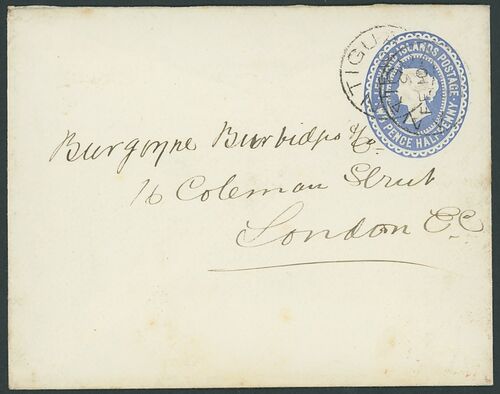 ANTIGUA
ISLANDS POSTAGE
PENCE HALFPENNY
Burgoyne Burbidges & Co.
16 Coleman Street
London E.C